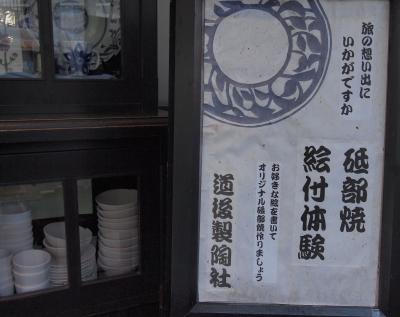 旅の想い出に
いかがですか
砥部焼
絵付体験
お好きな絵を書いて
オリジナル砥部焼作りましょう
道後製陶社